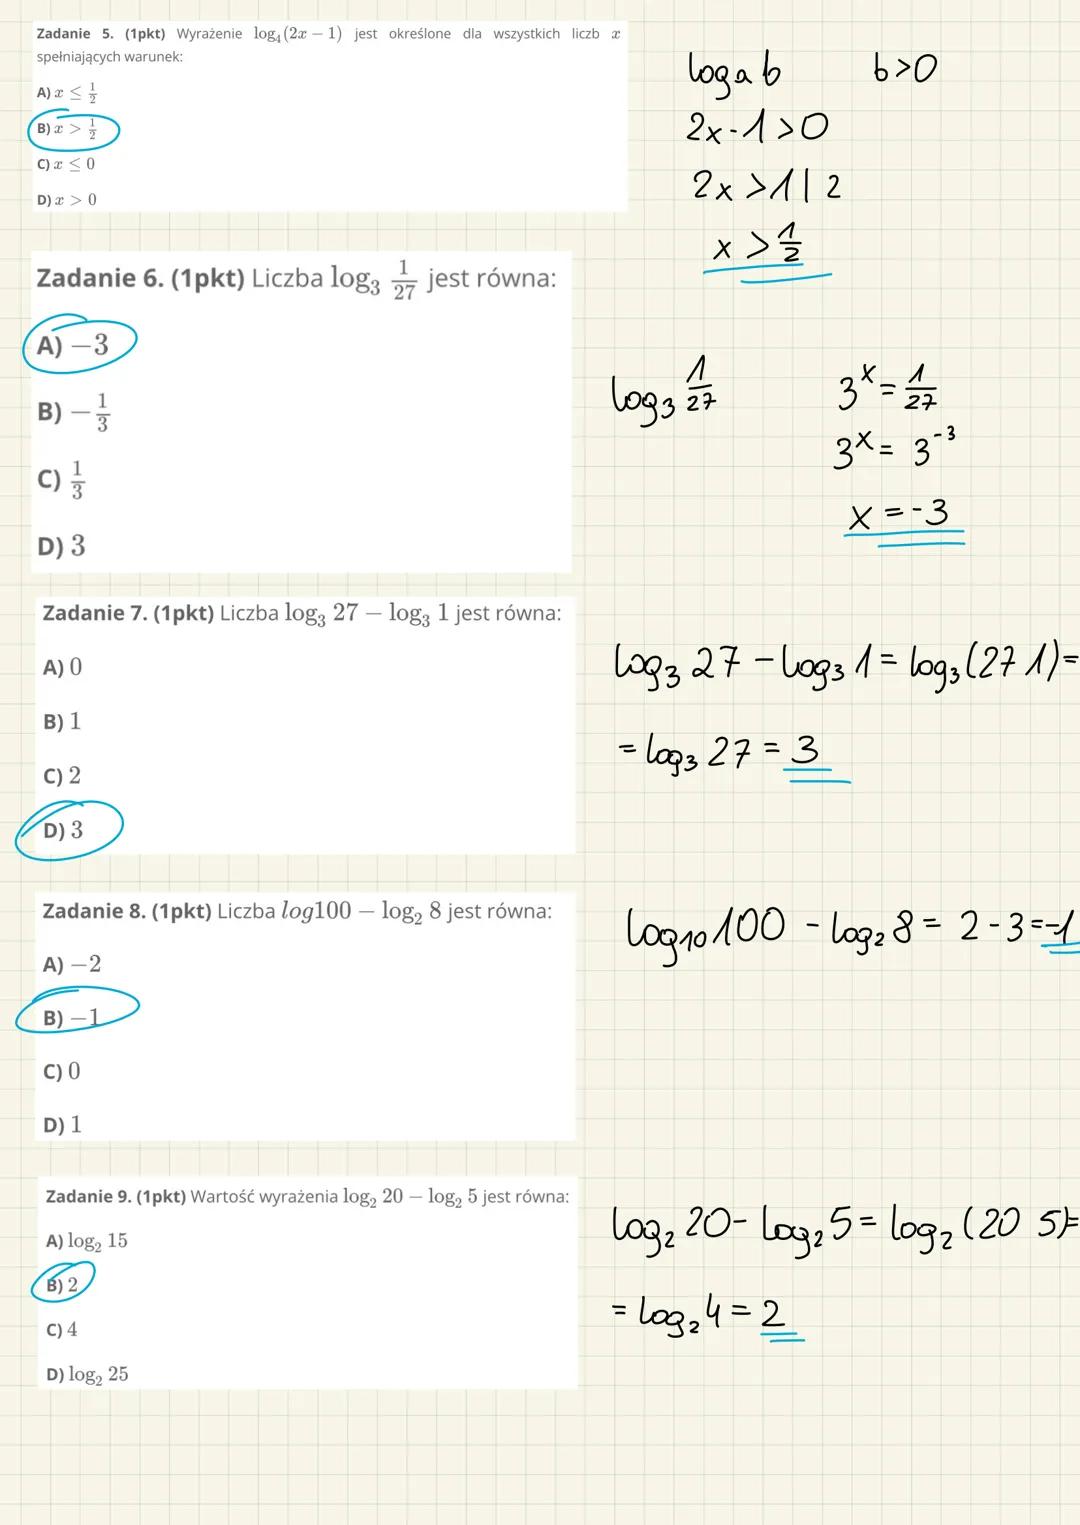 Zadanie 5. (1pkt) Wyrażenie log₄(2x − 1) jest określone dla wszystkich liczb x
spełniających warunek:
A) x ≤ 1/2
B) x > 1/2
C) x ≤ 0
D) x > 0
logₐ b b>0
2x-1>0
2x>1 | 2
x > 1/2
Zadanie 6. (1pkt) Liczba log₃ 1/27 jest równa:
A) −3
B) −1/3
C) 1/3
D) 3
log₃ 1/27
3ˣ = 1/27
3ˣ = 3⁻³
x = -3
Zadanie 7. (1pkt) Liczba log₃ 27 − log₃ 1 jest równa:
A) 0
B) 1
C) 2
D) 3
log₃ 27 - log₃ 1 = log₃(27 1)=
= log₃ 27 = 3
Zadanie 8. (1pkt) Liczba log100 − log₂ 8 jest równa:
A) −2
B) −1
C) 0
D) 1
log₁₀ 100 - log₂ 8 = 2-3=-1
Zadanie 9. (1pkt) Wartość wyrażenia log₂ 20 − log₂ 5 jest równa:
A) log₂ 15
B) 2
C) 4
D) log₂ 25
log₂ 20 - log₂ 5 = log₂ (20 5)=
= log₂ 4 = 2